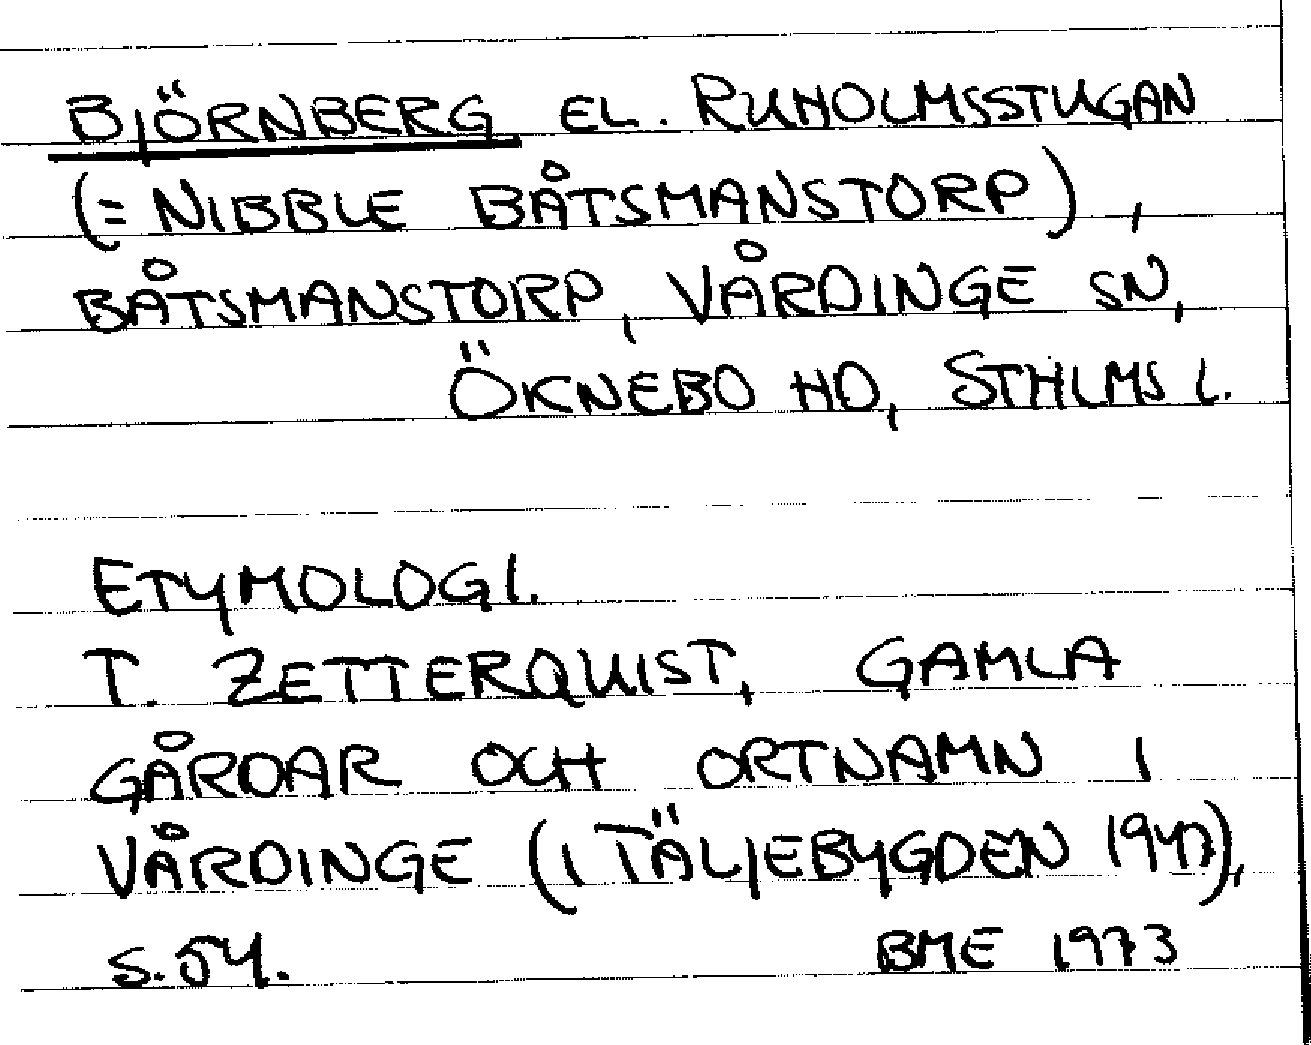 BJÖRNBERG EL. RUHOLMSSTUGAN
(= NIBBLE BÅTSMANSTORP),
BÅTSMANSTORP, VÅRDINGE SN,
ÖKNEBO HD, STHLMS L.
ETYMOLOGI.
T. ZETTERQUIST, GAMLA
GÅRDAR OCH ORTNAMN I
VÅRDINGE (I TÄLJEBYGDEN 1947),
S. 54.
BME 1973